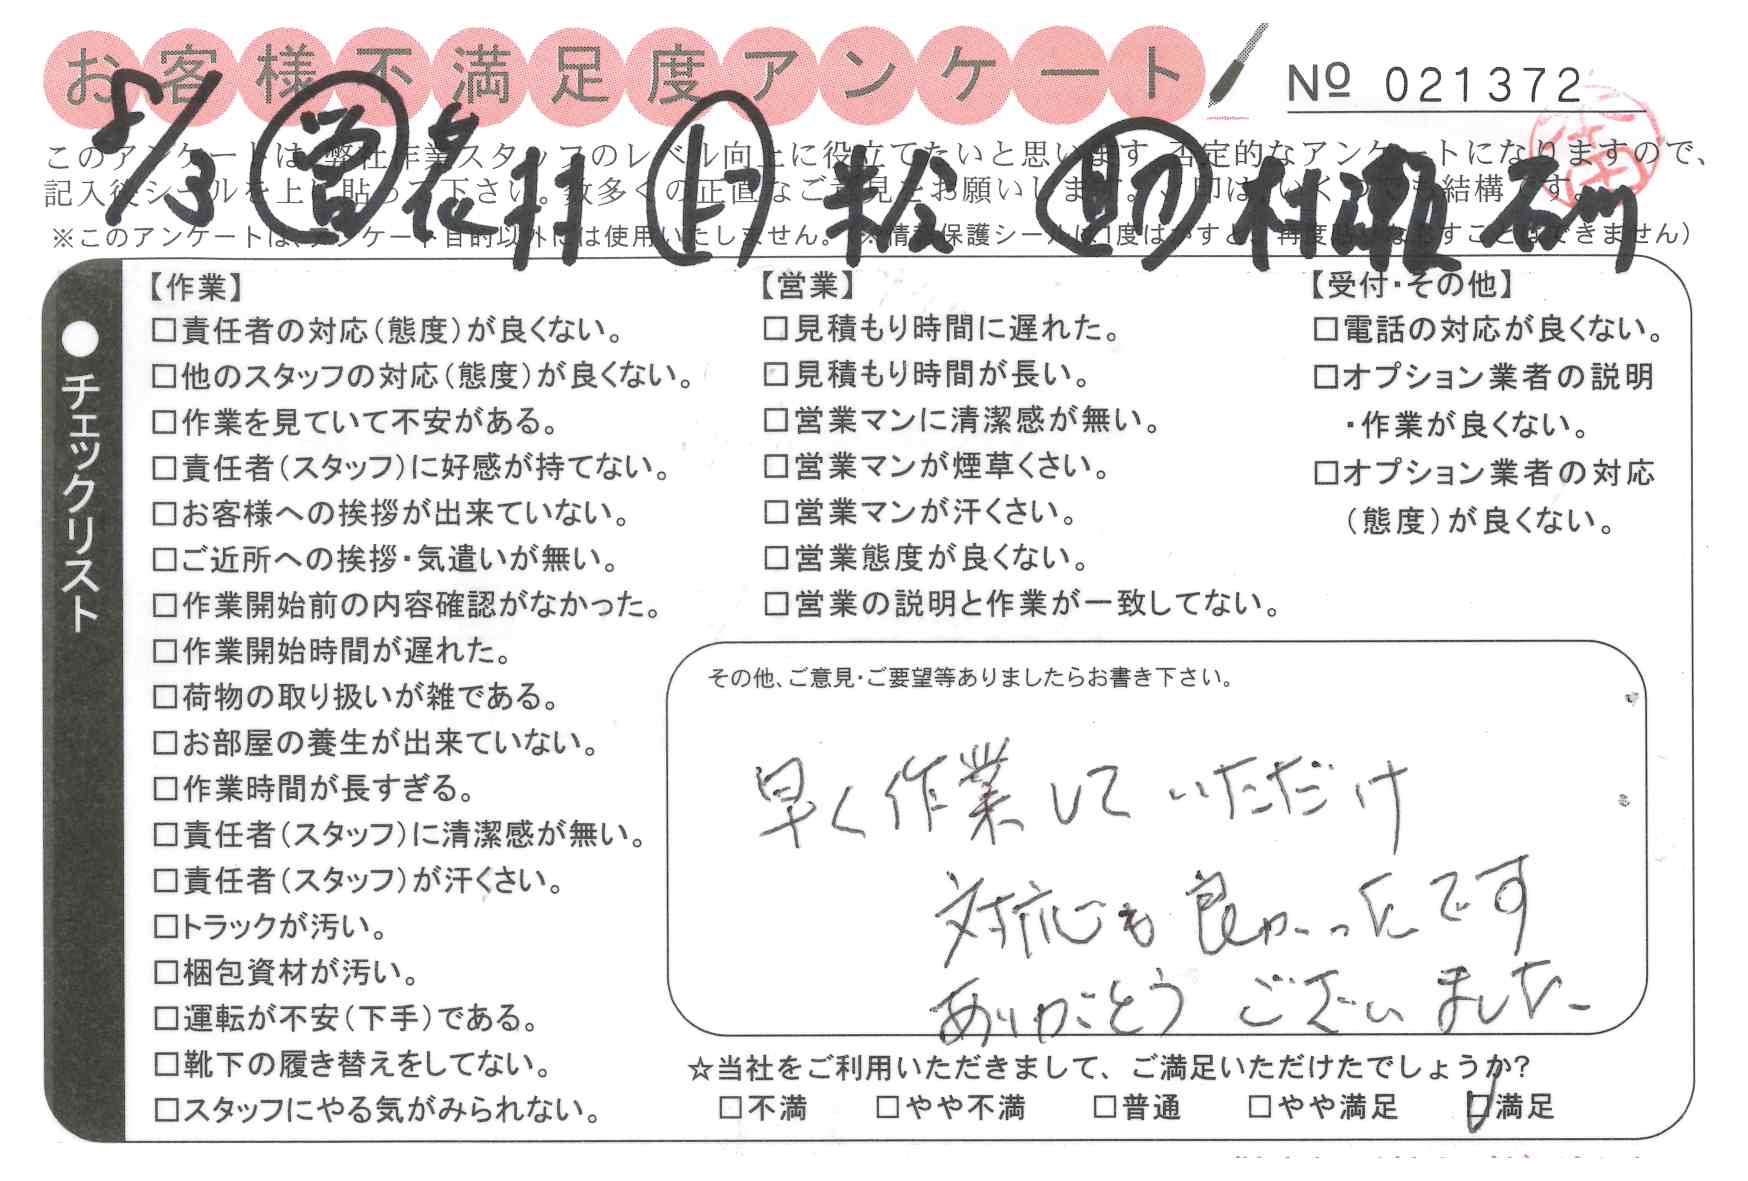 お客様不満足度アンケート
№ 021372
このアンケートは、弊社作業スタッフのレベル向上に役立てたいと思います。否定的なアンケートになりますので、
記入後シールを上に貼って下さい。数多くの正直なご意見をお願いします。レ印は、いくつでも結構です。
※このアンケートは、アンケート目的以外には使用いたしません。(※情報保護シールは1度はがすと、再度貼りなおすことはできません)
営 上 松 助 村瀬 石川
●チェックリスト
【作業】
□責任者の対応(態度)が良くない。
□他のスタッフの対応(態度)が良くない。
□作業を見ていて不安がある。
□責任者(スタッフ)に好感が持てない。
□お客様への挨拶が出来ていない。
□ご近所への挨拶・気遣いが無い。
□作業開始前の内容確認がなかった。
□作業開始時間が遅れた。
□荷物の取り扱いが雑である。
□お部屋の養生が出来ていない。
□作業時間が長すぎる。
□責任者(スタッフ)に清潔感が無い。
□責任者(スタッフ)が汗くさい。
□トラックが汚い。
□梱包資材が汚い。
□運転が不安(下手)である。
□靴下の履き替えをしてない。
□スタッフにやる気がみられない。
【営業】
□見積もり時間に遅れた。
□見積もり時間が長い。
□営業マンに清潔感が無い。
□営業マンが煙草くさい。
□営業マンが汗くさい。
□営業態度が良くない。
□営業の説明と作業が一致してない。
【受付・その他】
□電話の対応が良くない。
□オプション業者の説明
・作業が良くない。
□オプション業者の対応
(態度)が良くない。
その他、ご意見・ご要望等ありましたらお書き下さい。
早く作業していただけ
対応も良かったです
ありがとうございました
☆当社をご利用いただきまして、ご満足いただけたでしょうか?
□不満 □やや不満 □普通 □やや満足 □満足